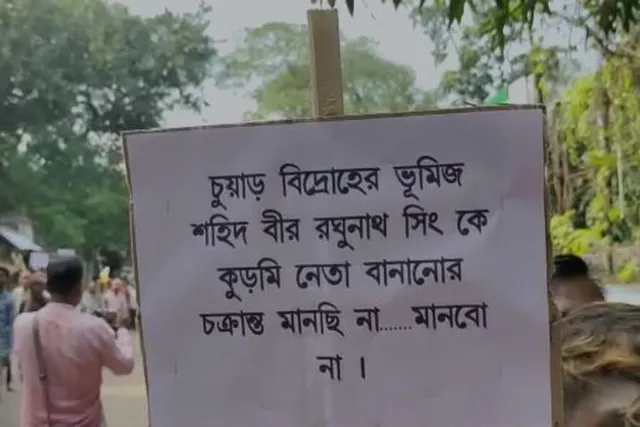 চুয়াড় বিদ্রোহের ভূমিজ
শহিদ বীর রঘুনাথ সিং কে
কুড়মি নেতা বানানোর
চক্রান্ত মানছি না.......মানবো
না ।